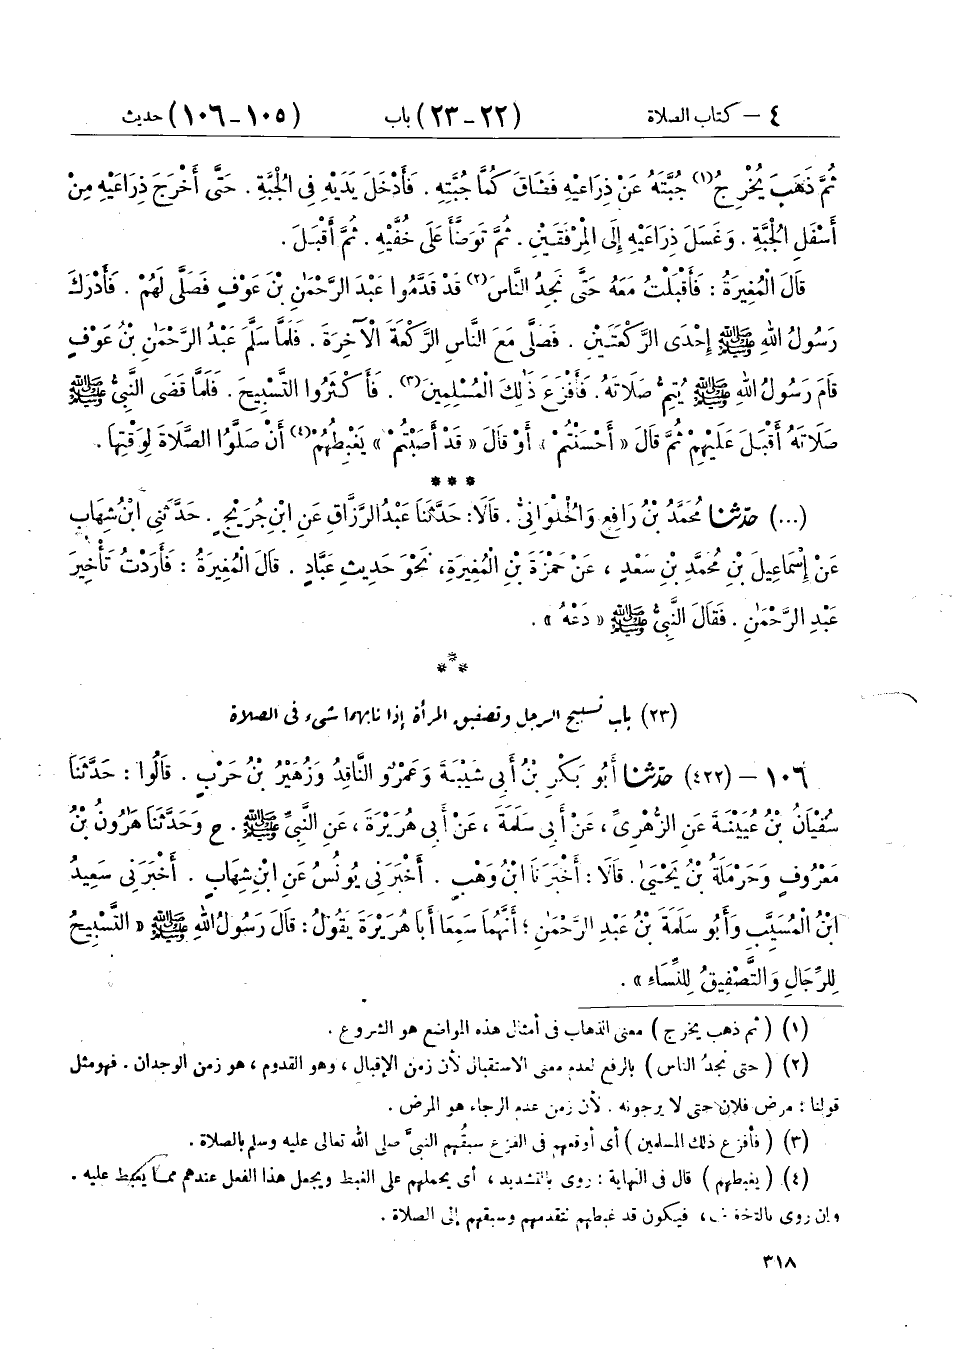 ٤ – كتاب الصلاة (٢٢-٢٣) باب (١٠٥-١٠٦) حديث
ثُمَّ ذَهَبَ يُخْرِجُ(١) جُبَّتَهُ عَنْ ذِرَاعَيْهِ فَضَاقَ كُمَّا جُبَّتِهِ . فَأَدْخَلَ يَدَيْهِ فِى الْجُبَّةِ . حَتَّى أَخْرَجَ ذِرَاعَيْهِ مِنْ
أَسْفَلِ الْجُبَّةِ . وَغَسَلَ ذِرَاعَيْهِ إِلَى الْمِرْفَقَيْنِ . ثُمَّ تَوَضَّأَ عَلَى خُفَّيْهِ . ثُمَّ أَقْبَلَ .
قَالَ الْمُغِيرَةُ : فَأَقْبَلْتُ مَعَهُ حَتَّى نَجِدُ النَّاسَ(٢) قَدْ قَدَّمُوا عَبْدَ الرَّحْمَٰنِ بْنَ عَوْفٍ فَصَلَّى لَهُمْ . فَأَدْرَكَ
رَسُولُ اللهِ ﷺ إِحْدَى الرَّكْعَتَيْنِ . فَصَلَّى مَعَ النَّاسِ الرَّكْعَةَ الْآخِرَةَ . فَلَمَّا سَلَّمَ عَبْدُ الرَّحْمَٰنِ بْنُ عَوْفٍ
قَامَ رَسُولُ اللهِ ﷺ يُتِمُّ صَلَاتَهُ . فَأَفْزَعَ ذَٰلِكَ الْمُسْلِمِينَ(٣) . فَأَكْثَرُوا التَّسْبِيحَ . فَلَمَّا قَضَى النَّبِىُّ ﷺ
صَلَاتَهُ أَقْبَلَ عَلَيْهِمْ ثُمَّ قَالَ « أَحْسَنْتُمْ » أَوْ قَالَ « قَدْ أَصَبْتُمْ » يَغْبِطُهُمْ(٤) أَنْ صَلَّوُا الصَّلَاةَ لِوَقْتِهَا .
* * *
(...) حدّثنا مُحَمَّدُ بْنُ رَافِعٍ وَالْحُلْوَانِىُّ . قَالَا : حَدَّثَنَا عَبْدُ الرَّزَّاقِ عَنِ ابْنِ جُرَيْجٍ . حَدَّثَنِى ابْنُ شِهَابٍ
عَنْ إِسْمَاعِيلَ بْنِ مُحَمَّدِ بْنِ سَعْدٍ ، عَنْ حَمْزَةَ بْنِ الْمُغِيرَةِ، نَحْوَ حَدِيثِ عَبَّادٍ . قَالَ الْمُغِيرَةُ : فَأَرَدْتُ تَأْخِيرَ
عَبْدِ الرَّحْمَٰنِ . فَقَالَ النَّبِىُّ ﷺ « دَعْهُ » .
***
(٢٣) باب تسبيح الرجل وتصفيق المرأة إذا نابهما شىء فى الصلاة
١٠٦ – (٤٢٢) حدّثنا أَبُو بَكْرِ بْنُ أَبِى شَيْبَةَ وَعَمْرٌو النَّاقِدُ وَزُهَيْرُ بْنُ حَرْبٍ . قَالُوا : حَدَّثَنَا
سُفْيَانُ بْنُ عُيَيْنَةَ عَنِ الزُّهْرِىِّ ، عَنْ أَبِى سَلَمَةَ ، عَنْ أَبِى هُرَيْرَةَ ، عَنِ النَّبِىِّ ﷺ . ح وَحَدَّثَنَا هَارُونُ بْنُ
مَعْرُوفٍ وَحَرْمَلَةُ بْنُ يَحْيَىٰ . قَالَا : أَخْبَرَنَا ابْنُ وَهْبٍ . أَخْبَرَنِى يُونُسُ عَنِ ابْنِ شِهَابٍ . أَخْبَرَنِى سَعِيدُ
ابْنُ الْمُسَيَّبِ وَأَبُو سَلَمَةَ بْنُ عَبْدِ الرَّحْمَٰنِ ؛ أَنَّهُمَا سَمِعَا أَبَا هُرَيْرَةَ يَقُولُ : قَالَ رَسُولُ اللهِ ﷺ « التَّسْبِيحُ
لِلرِّجَالِ وَالتَّصْفِيقُ لِلنِّسَاءِ » .
(١) ( ثم ذهب يخرج ) معنى الذهاب فى أمثال هذه المواضع هو الشروع .
(٢) ( حتى نجدُ الناس ) بالرفع لعدم معنى الاستقبال لأن زمن الإقبال ، وهو القدوم ، هو زمن الوجدان . فهو مثل
قولنا : مرض فلان حتى لا يرجونه . لأن زمن عدم الرجاء هو المرض .
(٣) ( فأفزع ذلك المسلمين ) أى أوقعهم فى الفزع سبقُهم النبىَّ صلى الله تعالى عليه وسلم بالصلاة .
(٤) ( يغبطهم ) قال فى النهاية : روى بالتشديد ، أى يحملهم على الغبط ويجعل هذا الفعل عندهم مما يُغبط عليه .
وإن روى بالتخفيف ، فيكون قد غبطهم لتقدمهم وسبقهم إلى الصلاة .
٣١٨